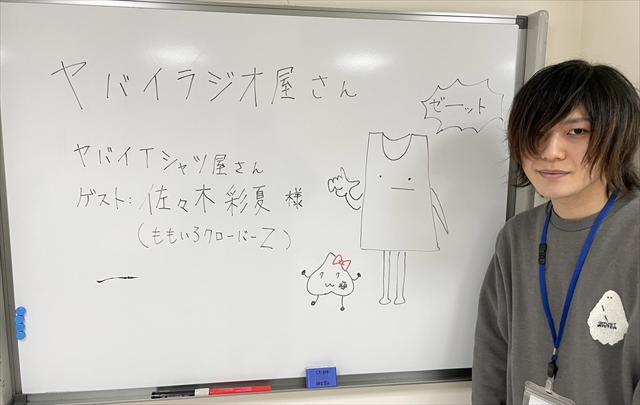 ヤバイラジオ屋さん
ゼーット
ヤバイTシャツ屋さん
ゲスト:佐々木彩夏 様
(ももいろクローバーZ)